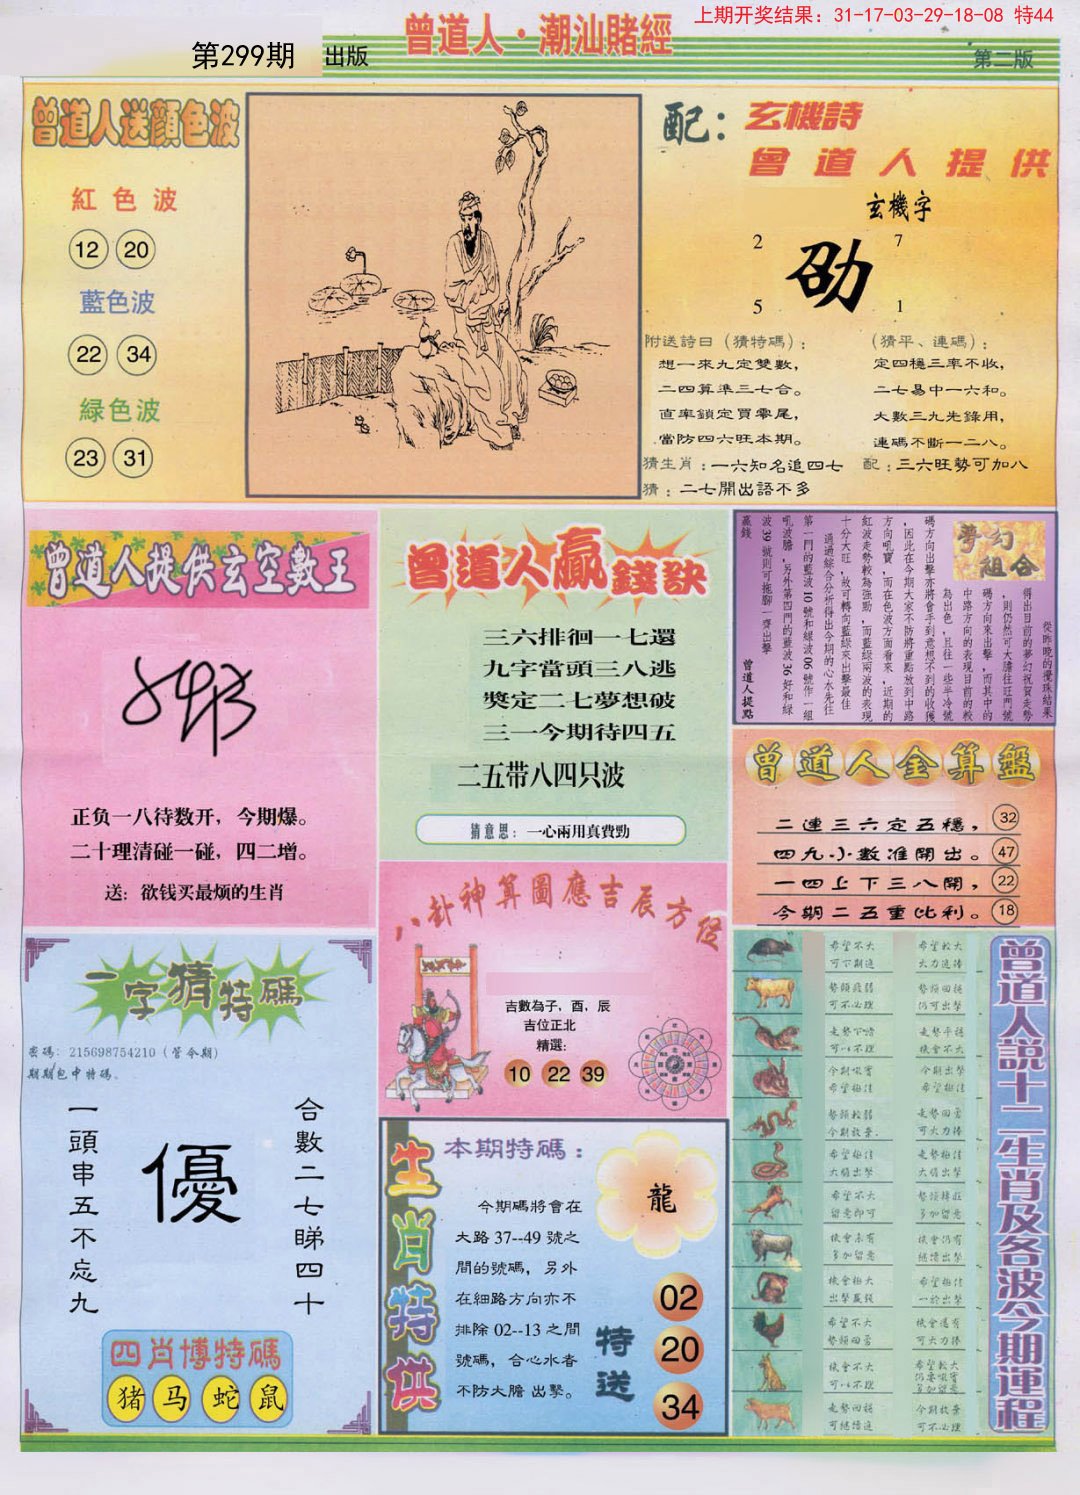 上期开奖结果：31-17-03-29-18-08 特44
曾道人·潮汕賭經
第299期
出版
第二版
曾道人送顔色波
紅色波
12 20
藍色波
22 34
緑色波
23 31
配：玄機詩
曾道人提供
玄機字
2 7
劭
5 1
附送詩曰（猜特碼）：
想一來九定雙數，
二四算準三七合。
直率鎖定買零尾，
當防四六旺本期。
（猜平、連碼）：
定四穩三率不收，
二七易中一六和。
大數三九先錄用，
連碼不斷一二八。
猜生肖：一六知名追四七
配：三六旺勢可加八
猜：二七開出語不多
曾道人提供玄空數王
正负一八待数开，今期爆。
二十理清碰一碰，四二增。
送：欲钱买最烦的生肖
曾道人贏錢訣
三六排徊一七還
九字當頭三八逃
獎定二七夢想破
三一今期待四五
二五带八四只波
猜意思：一心兩用真費勁
夢幻組合
從昨晚的攪珠結果
得出目前的夢幻祝賀走勢
，則仍然可大膽往旺門號
碼方向來出擊，而其中的
中路方向的表現目前的較
為出色，且往一些半冷號
碼方向出擊亦將會手到意想不到的收獲
，因此在今期大家不防將重點放到中路
方向吼寶，而在色波方面看來，近期的
紅波走勢較為強勁，而藍綠兩波的表現
十分大旺，故可轉向藍綠來出擊最佳
通過綜合分析得出今期的心水先往
第一門的藍波10號和綠波06號作一組
吼波膽，另外第四門的藍波36好和綠
波39號則可拖腳一齊出擊
贏錢
曾道人提點
曾道人金算盤
二連三六定五穩，32
四九小數准開出。47
一四上下三八開，22
今期二五重比利。18
八卦神算圖應吉辰方位
吉數為子，酉，辰
吉位正北
精選：
10 22 39
一字猜特碼
密碼：215698754210（管令期）
期期包中特碼、
一頭串五不忘九
優
合數二七睇四十
四肖博特碼
猪 马 蛇 鼠
生肖特供
本期特碼：
今期碼將會在
大路37--49號之
間的號碼，另外
在細路方向亦不
排除02--13之間
號碼，合心水者
不防大膽出擊。
龍
特送
02
20
34
曾道人説十二生肖及各波今期運程
希望不大 希望較大
可下期進 大力追捧
今期吼實 今期出擊
希望極佳 希望極佳
希望極佳 走勢極佳
大膽出擊 大膽出擊
留意即可 多加留意
機會未有 機會仍有
多加留意 繼續出擊
機會極大 希望極佳
出擊贏錢
希望不大 機會還有
機會不大 希望較大
走勢回穩 今期放棄
可繼續進 可不必理